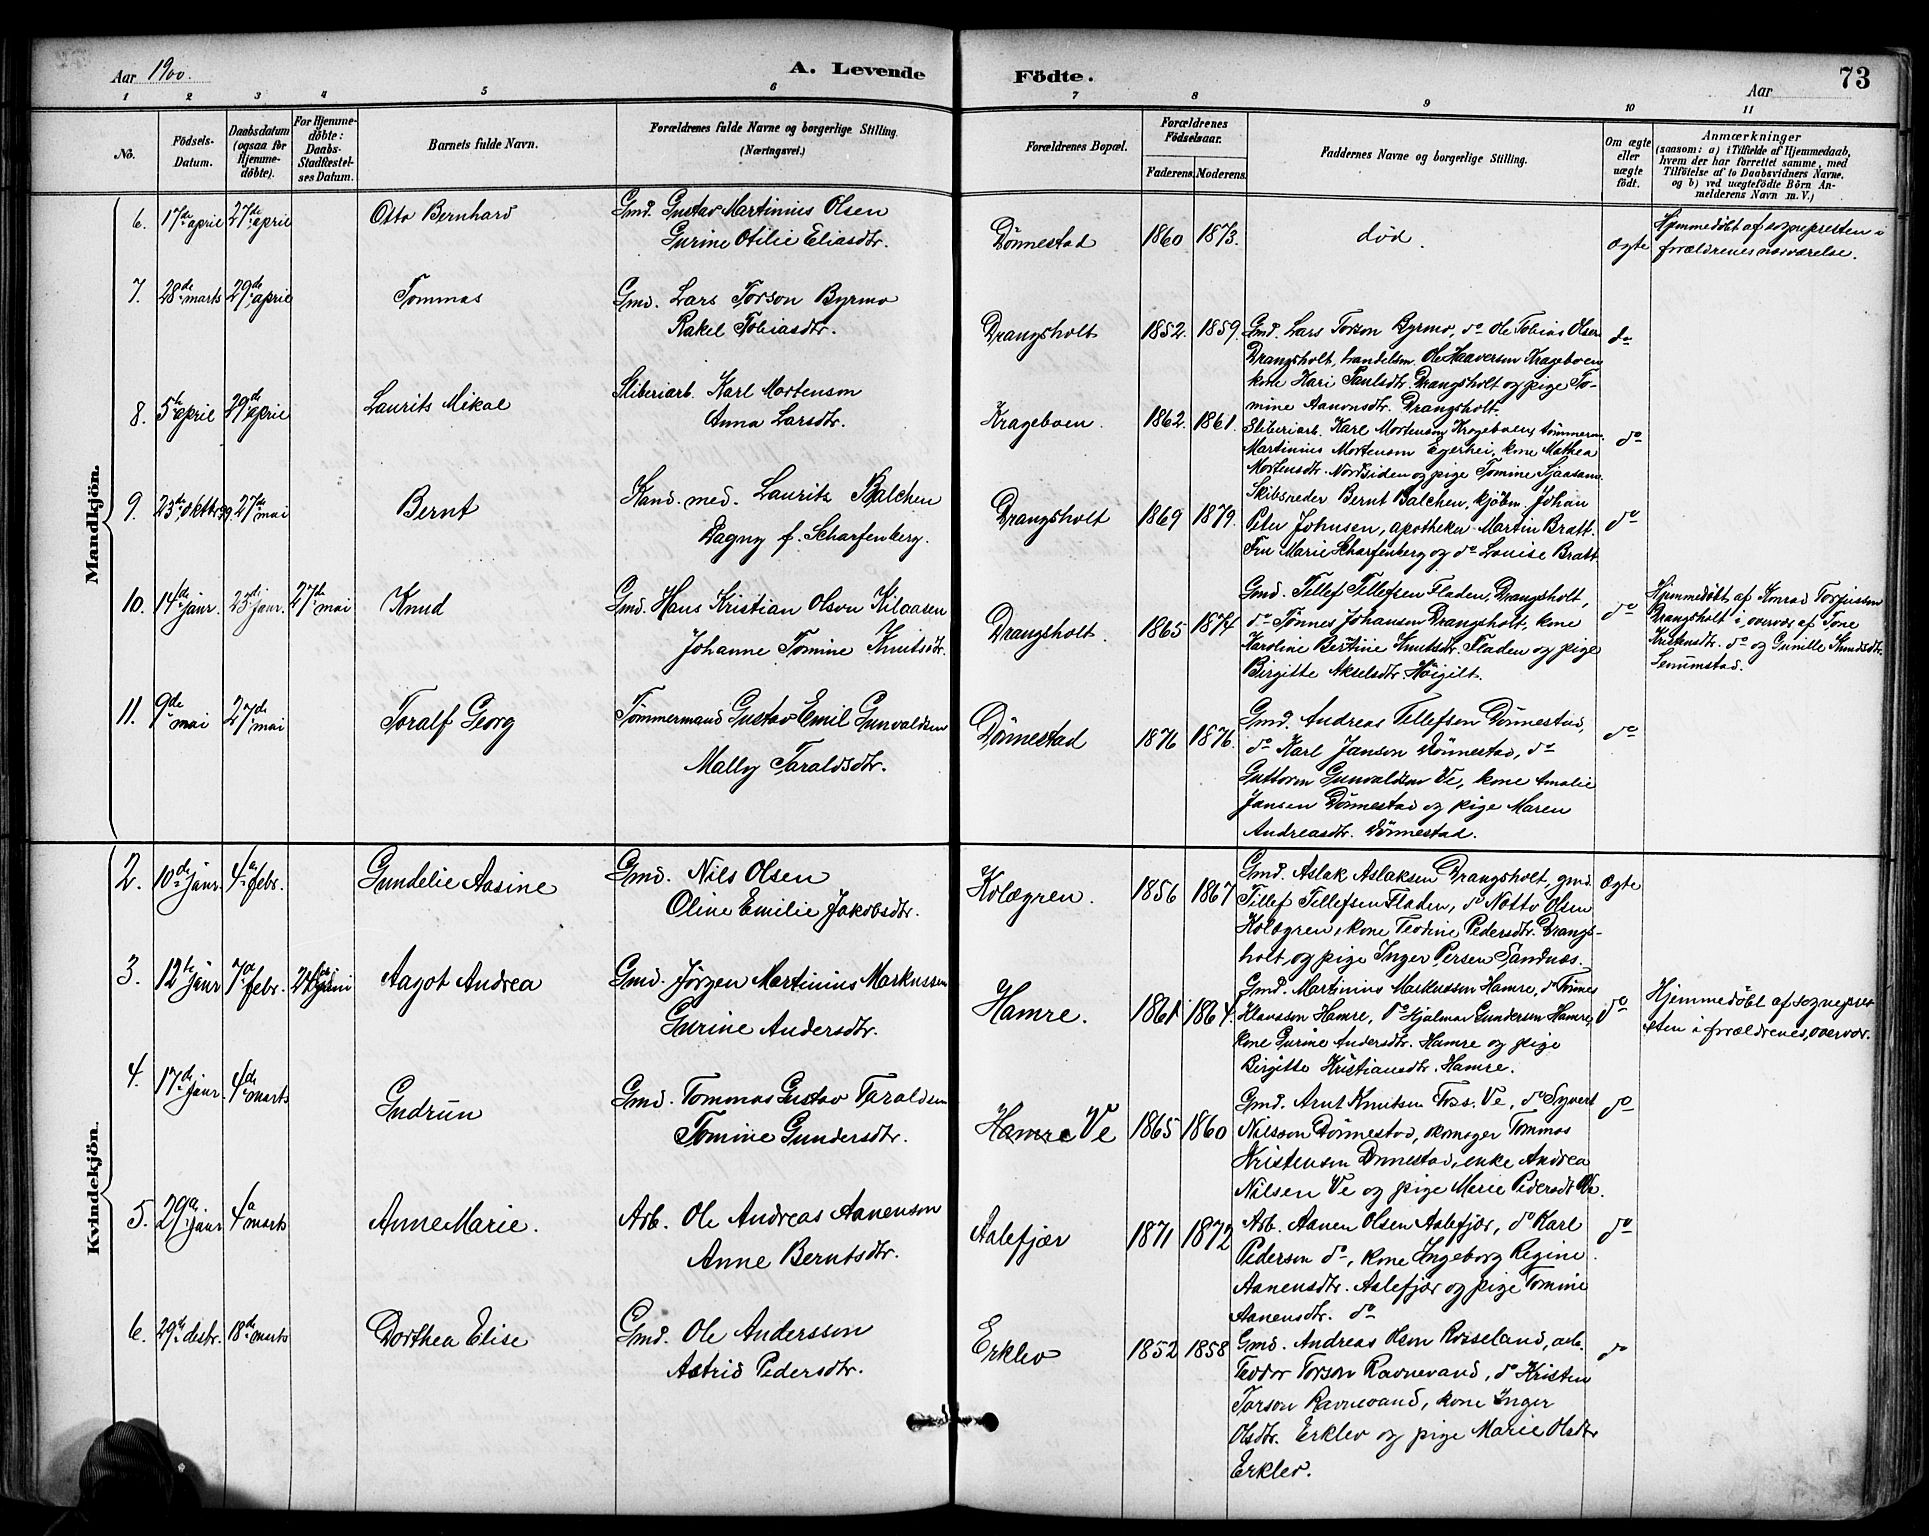 Aar 1900.
A. Levende Födte.
Aar
73
1 2 3 4 5 6 7 8 9 10 11
No.
Födsels-Datum.
Daabsdatum (ogsaa for Hjemmedöbte).
For Hjemmedöbte: Daabs-Stadfestelses Datum.
Barnets fulde Navn.
Forældrenes fulde Navne og borgerlige Stilling.
(Næringsvei.)
Forældrenes Bopæl.
Forældrenes Födselsaar.
Faderens. Moderens.
Faddernes Navne og borgerlige Stilling.
Om ægte eller uægte födt.
Anmærkninger
(saasom: a) i Tilfælde af Hjemmedaab, hvem der har forrettet samme, med Tilföielse af to Daabsvidners Navne, og b) ved uægtefödte Börn Anmelderens Navn m. V.)
Mandkjön.
6. 17de april 27de april Otto Bernhard
Gmd. Gustav Martinius Olsen
Gurine Otilie Eliasdtr.
Dönnestad 1860 1873. død. Ægte
Hjemmedöbt af sognepresten i
forældrenes nærværelse.
7. 28de marts 29de april Tommas
Gmd. Lars Torson Byrmo
Rakel Tobiasdtr.
Drangsholt 1852. 1859.
Gmd. Lars Torson Byrmo, do Ole Tobias Olsen
Drangsholt, handelsm. Ole Haaversen Krageboen
kone Kari Paulsdtr. Drangsholt og pige To-
mine Aanonsdtr. Drangsholt.
do
8. 5te april 29de april Laurits Mikal
Sliberiarb. Karl Mortensen
Anna Larsdtr.
Krageboen. 1862. 1861.
Sliberiarb. Karl Mortensen Krageboen, tömmerm.
Martinius Mortensen Egerhei, kone Mathea
Mortensdtr. Nordsiden og pige Tomine
do
9. 23de oktbr. 99. 27de mai Bernt
Kand. med. Lauritz Balchen
Dagny f. Scharfenberg.
Drangsholt 1869 1879.
Skibsreder Bernt Balchen, kjöbm. Johan
Peter Johnsen, apotheker Martin Bratt.
Fru Marie Scharfenberg og do Louise Bratt
do
10. 14de janr. 23de janr. 27de mai Knud
Gmd. Hans Kristian Olson Kilaasen
Johanne Tomine Knutsdtr.
Drangsholt. 1865 1874
Gmd. Tellef Tellefsen Fladen, Drangsholt,
do Tönnes Johansen Drangsholt, kone
Karoline Bertine Knutsdtr. Fladen og pige
Birgitte Akselsdtr. Höigilt.
do
Hjemmedöbt af Konrad Torjussen
Drangsholt i overvær af Tone
Kristensdtr. do og Gunille Knudsdtr.
Senumstad.
11. 9de mai 27de mai Toralf Georg
Tömmermand Gustav Emil Gunvaldsen
Mally Taraldsdtr.
Dönnestad 1876 1876.
Gmd. Andreas Tellefsen Dönnestad,
do Karl Janson Dönnestad, do
Guttorm Gunvaldsen Ve, kone Amalie
Jansen Dönnestad og pige Maren
Andreasdtr. Dönnestad.
do
Kvindekjön.
2. 10de janr. 4a febr. Gundelie Aasine
Gmd. Nils Olsen
Oline Emilie Jakobsdtr.
Kolægren. 1856 1867
Gmd. Aslak Aslaksen Drangsholt, gmd.
Tellef Tellefsen Fladen, do Notto Olsen
Kolægren, kone Teodine Pedersdtr. Drangs-
holt og pige Inger Persen Sandnæs.
Ægte
3. 12te janr 7a febr. 24de juni Aagot Andrea
Gmd. Jörgen Martinius Markussen
Gurine Andersdtr.
Hamre. 1861 1864.
Gmd. Martinius Markussen Hamre, do Tönnes
Klaussen Hamre, do Hjalmar Gundersen Hamre,
kone Gurine Andersdtr. Hamre og pige
Birgitte Kristiansdtr. Hamre.
do
Hjemmedöbt af sognepres-
sten i forældrenes overvær.
4. 17de janr. 4de marts Gudrun
Gmd. Tommas Gustav Taraldsen
Tomine Gundersdtr.
Hamre Ve 1865 1860
Gmd. Arnt Knutsen Foss. Ve, do Syvert
Nilsson Dönnestad, skomager Tommas
Kristensen Dnnestad, enke Andrea
Nilsen Ve og pige Marie Pedersdt Ve.
do
5. 29a janr 4a marts Anne Marie.
Arb. Ole Andreas Aanenson
Anne Berntsdtr.
Aalefjær 1871 1872
Arb. Aanen Olsen Aalefjær, do Karl
Pedersen do, kone Ingeborg Regine
Aanensdtr. Aalefjær og pige Tomine
Aanensdtr. do
do
6. 29de desbr. 18de marts Dorthea Elise
Gmd. Ole Andersson
Astrid Pedersdtr.
Erklev 1852 1858
Gmd. Andreas Olsen Rosseland, arb.
Teodor Torson Ravnevand, do Kristen
Torson Ravnevand, kone Inger
Olsdtr. Erklev og pige Marie Olsdtr
Erklev.
do